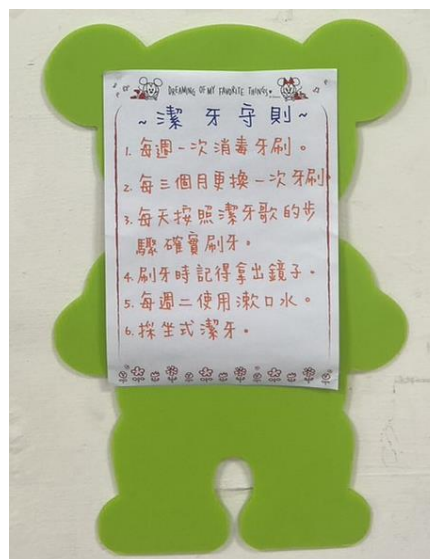 DREAMING OF MY FAVORITE THINGS
~潔牙守則~
1. 每週一次消毒牙刷。
2. 每三個月更換一次牙刷
3. 每天按照潔牙歌的步
驟確實刷牙。
4. 刷牙時記得拿出鏡子。
5. 每週二使用漱口水。
6. 採坐式潔牙。